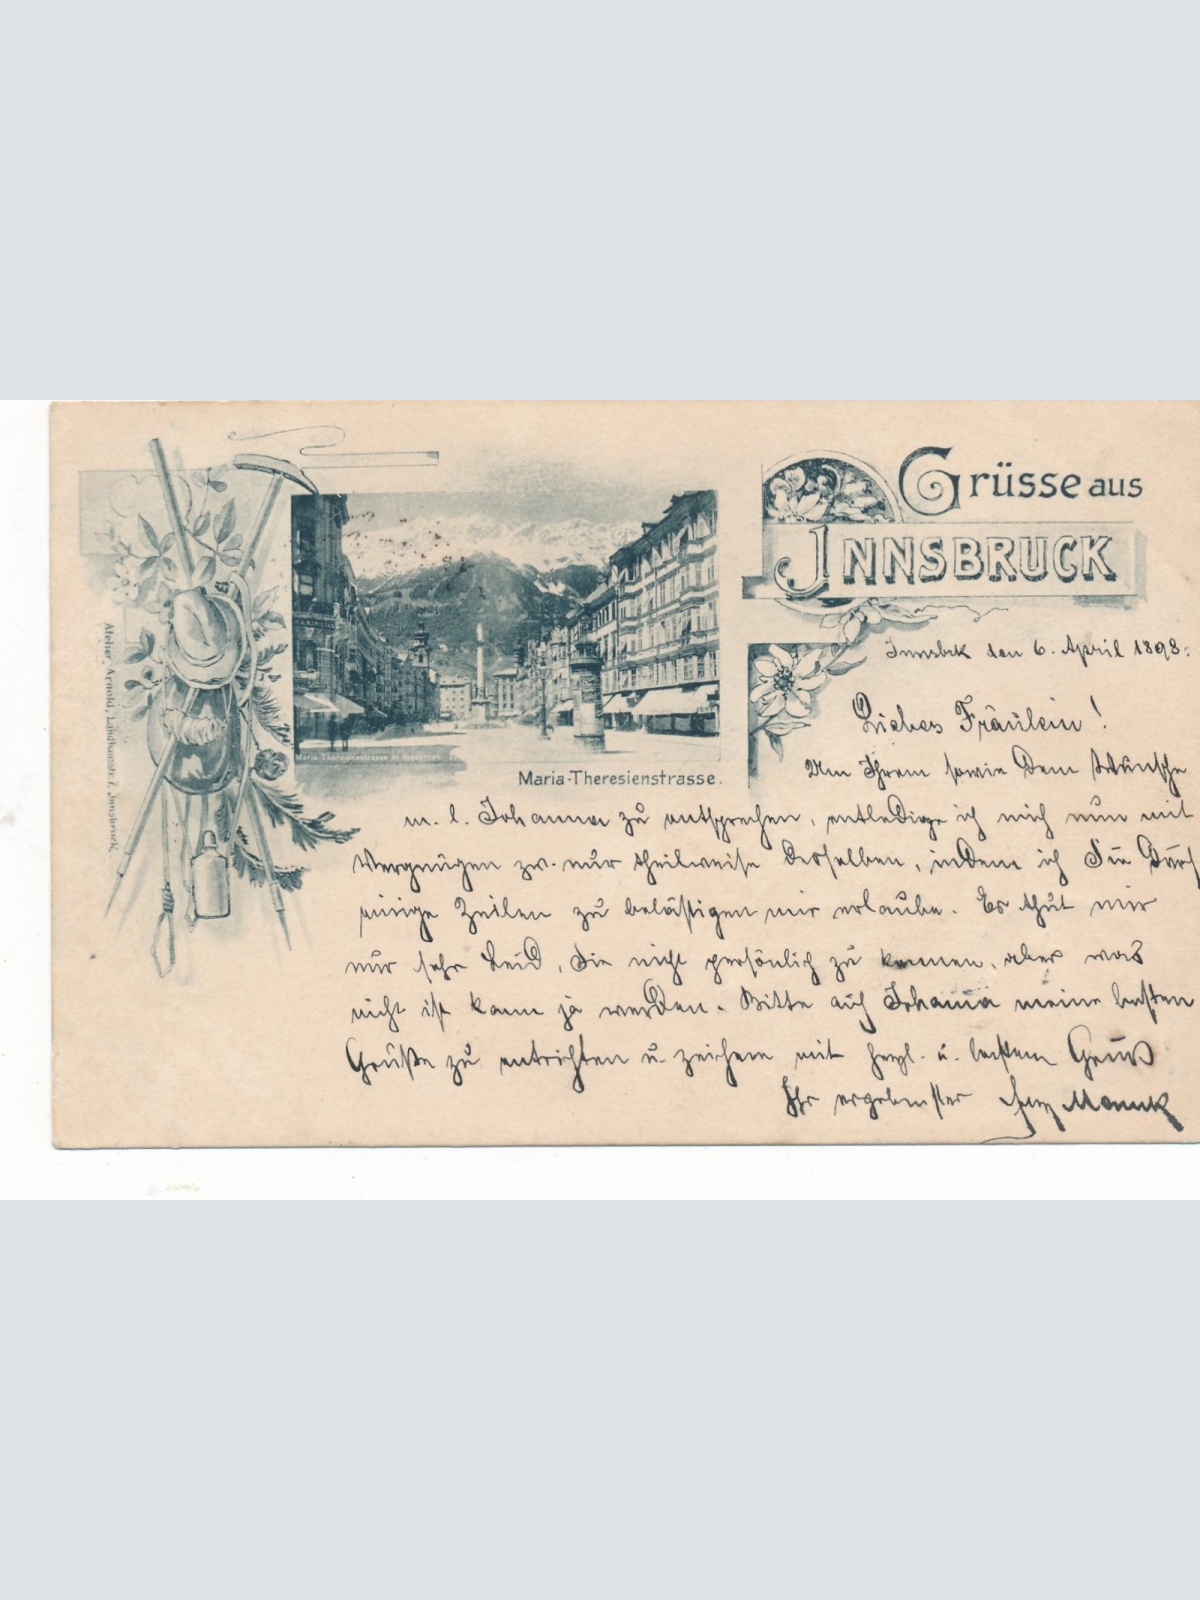 Grüsse aus
INNSBRUCK
MAXIMILIAN
Maria-Theresienstrasse in Innsbruck
Maria-Theresienstrasse.
Atelier Arnold, Landhausstr. 7, Innsbruck.
Innsbck den 6. April 1898.
Liebes Fräulein!
Um Ihrem sowie dem Wunsche
m. l. Johanna zu entsprechen, entledige ich mich nun mit
Vergnügen zw. nur theilweise desselben, indem ich Sie durch
einige Zeilen zu belästigen mir erlaube. Es thut mir
nur sehr Leid, Sie nicht persönlich zu kennen, aber was
nicht ist kann ja werden. Bitte auch Johanna meine besten
Grüße zu entrichten u. zeichne mit herzl. u. bestem Gruß
Ihr ergebenster